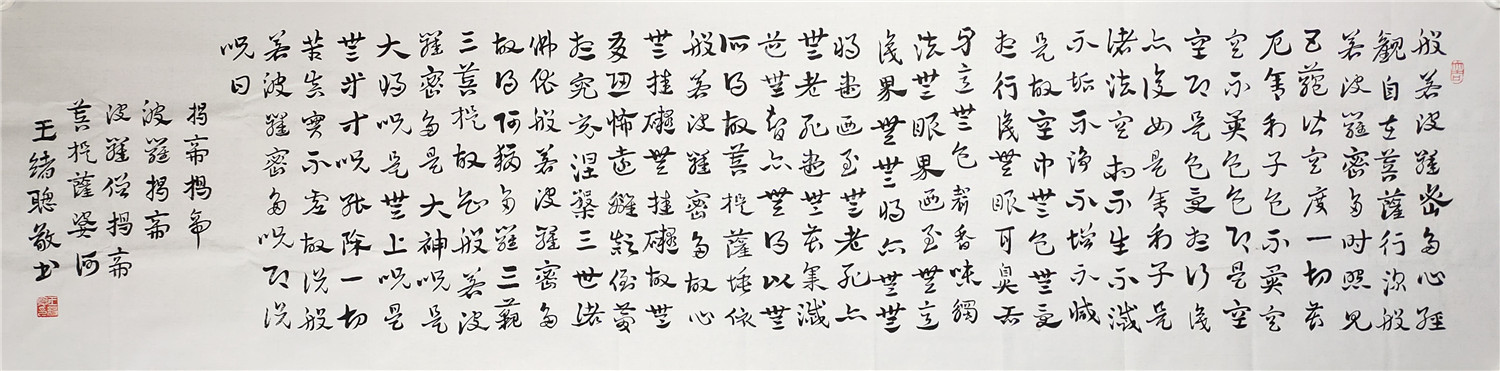 般若波羅蜜多心經
觀自在菩薩行深般
若波羅蜜多時照見
五蘊皆空度一切苦
厄舍利子色不異空
空不異色色即是空
空即是色受想行識
亦復如是舍利子是
諸法空相不生不滅
不垢不淨不增不減
是故空中無色無受
想行識無眼耳鼻舌
身意無色聲香味觸
法無眼界乃至無意
識界無無明亦無無
明盡乃至無老死亦
無老死盡無苦集滅
道無智亦無得以無
所得故菩提薩埵依
般若波羅蜜多故心
無挂礙無挂礙故無
有恐怖遠離顛倒夢
想究竟涅槃三世諸
佛依般若波羅蜜多
故得阿耨多羅三藐
三菩提故知般若波
羅蜜多是大神呪是
大明呪是無上呪是
無等等呪能除一切
苦真實不虛故說般
若波羅蜜多呪即說
呪曰
揭帝揭帝
波羅揭帝
波羅僧揭帝
菩提薩婆訶
王緒聰敬書